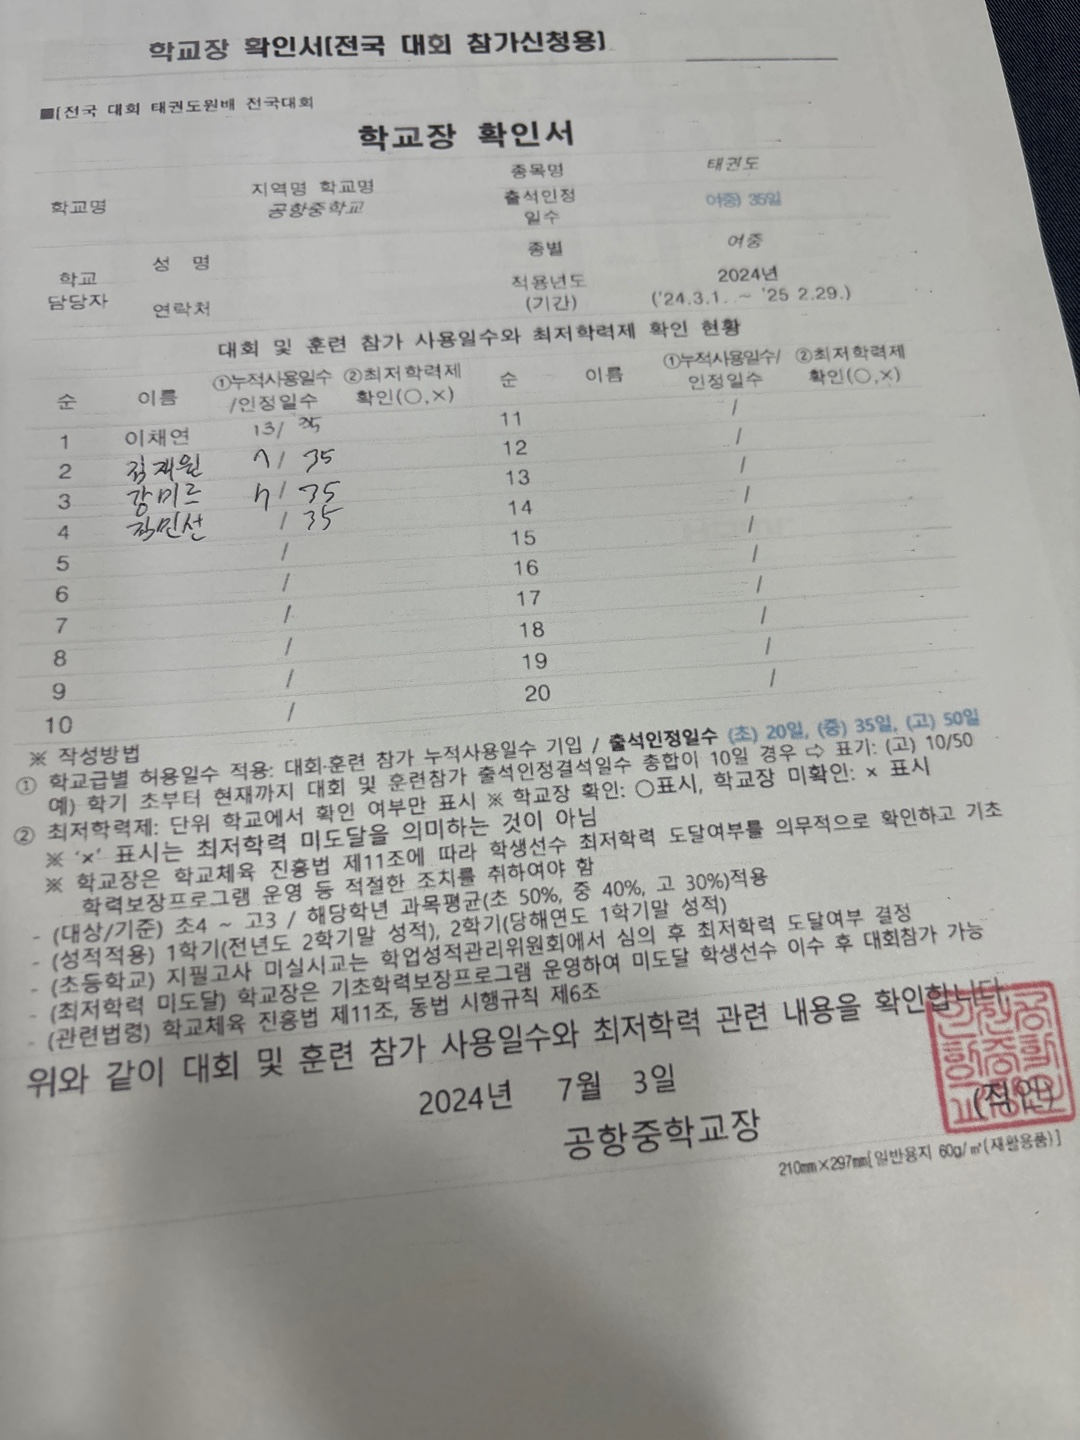 학교장 확인서[전국 대회 참가신청용]
■[전국 대회 태권도원배 전국대회
학교장 확인서
학교명 지역명 학교명 공항중학교
종목명 태권도
출석인정 일수 여중) 35일
학교 담당자 성 명
연락처
종별 여중
적용년도 (기간) 2024년 ('24.3.1. ~ '25 2.29.)
대회 및 훈련 참가 사용일수와 최저학력제 확인 현황
순 이름 ①누적사용일수/인정일수 ②최저학력제 확인(○,×) 순 이름 ①누적사용일수/인정일수 ②최저학력제 확인(○,×)
1 이채연 13/ 35 11 /
2 / 35 12 /
3 강미르 / 35 13 /
4 / 35 14 /
5 / 15 /
6 / 16 /
7 / 17 /
8 / 18 /
9 / 19 /
10 / 20 /
※ 작성방법
① 학교급별 허용일수 적용: 대회·훈련 참가 누적사용일수 기입 / 출석인정일수 (초) 20일, (중) 35일, (고) 50일
예) 학기 초부터 현재까지 대회 및 훈련참가 출석인정결석일수 총합이 10일 경우 ⇨ 표기: (고) 10/50
② 최저학력제: 단위 학교에서 확인 여부만 표시 ※ 학교장 확인: ○표시, 학교장 미확인: × 표시
※ '×' 표시는 최저학력 미도달을 의미하는 것이 아님
※ 학교장은 학교체육 진흥법 제11조에 따라 학생선수 최저학력 도달여부를 의무적으로 확인하고 기초
학력보장프로그램 운영 등 적절한 조치를 취하여야 함
- (대상/기준) 초4 ~ 고3 / 해당학년 과목평균(초 50%, 중 40%, 고 30%)적용
- (성적적용) 1학기(전년도 2학기말 성적), 2학기(당해연도 1학기말 성적)
- (초등학교) 지필고사 미실시교는 학업성적관리위원회에서 심의 후 최저학력 도달여부 결정
- (최저학력 미도달) 학교장은 기초학력보장프로그램 운영하여 미도달 학생선수 이수 후 대회참가 가능
- (관련법령) 학교체육 진흥법 제11조, 동법 시행규칙 제6조
위와 같이 대회 및 훈련 참가 사용일수와 최저학력 관련 내용을 확인합니다.
2024년 7월 3일
공항중학교장 (직인)
210㎜×297㎜[일반용지 60g/㎡(재활용품)]